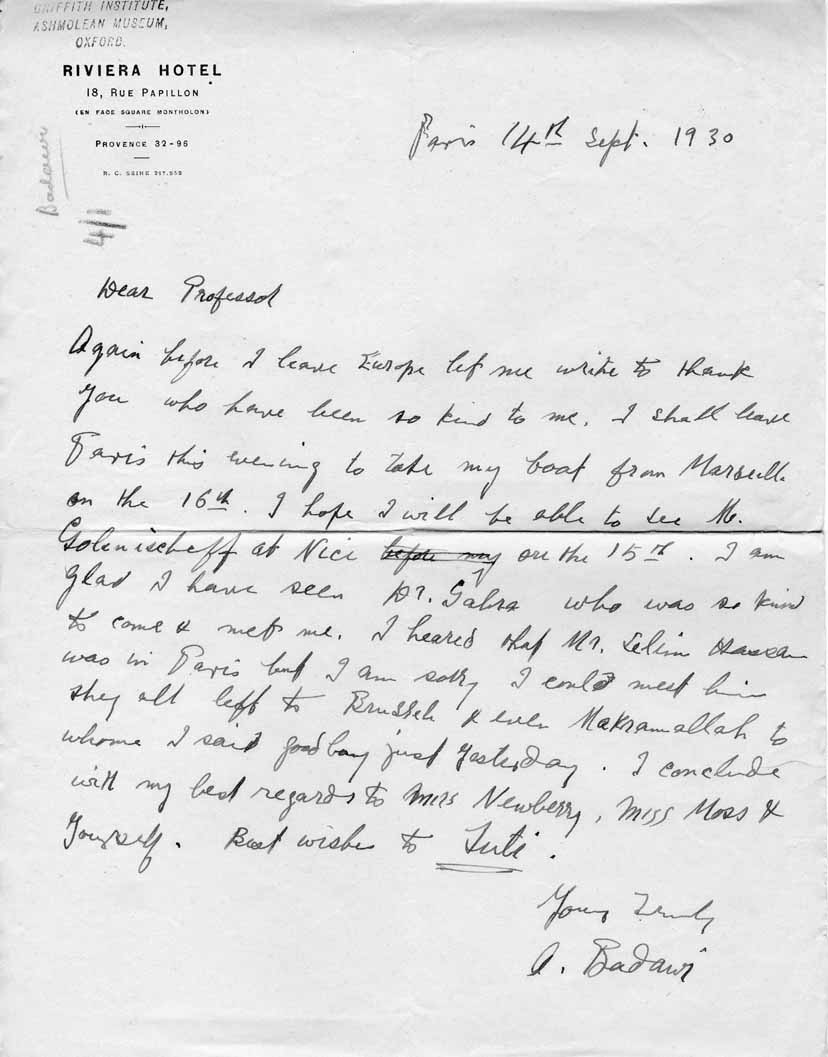 GRIFFITH INSTITUTE,
ASHMOLEAN MUSEUM,
OXFORD.
RIVIERA HOTEL
18, RUE PAPILLON
(EN FACE SQUARE MONTHOLON)
PROVENCE 32-96
R. C. SEINE 217.559
Badawi
4/1
Paris 14th Sept. 1930
Dear Professor
Again before I leave Europe let me write to thank
you who have been so kind to me. I shall leave
Paris this evening to take my boat from Marseille
on the 16th. I hope I will be able to see M.
Golenischeff at Nice before my on the 15th. I am
glad I have seen Dr. Gabra who was so kind
to come & met me. I heared that Mr. Selim Hassan
was in Paris but I am sorry I could meet him
they all left to Brussels & even Makramallah to
whome I said goodbay just yesterday. I conclude
with my best regards to Mrs Newberry, Miss Moss &
Yourself. Best wishes to Tuti.
Yours Truly
A. Badawi